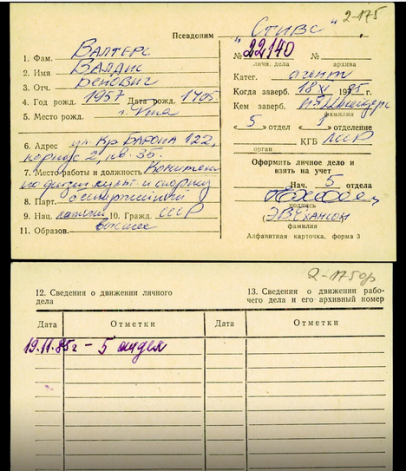 2-175
Псевдоним „Стивс“
1. Фам. Валтерс
2. Имя Валдис
3. Отч.
4. Год рожд. 1957 Дата рожд. 17/05
5. Место рожд. г. Рига
6. Адрес ул. Кр. Барона 122,
корпус 2, кв. 35.
7. Место работы и должность Комитет
по физич. культ. и спорту
8. Парт. беспартийный
9. Нац. латыш 10. Гражд. СССР
11. Образов. высшее
№ 22140 №
личн. дела архива
Катег. агент
Когда заверб. 18 XI 1985 г.
Кем заверб.
фамилия
5 отдел 1 отделение
КГБ
орган
Оформить личное дело и
взять на учет
Нач. 5 отдела
подпись
фамилия
Алфавитная карточка, форма 3
2-175др
12. Сведения о движении личного
дела
13. Сведения о движении рабо-
чего дела и его архивный номер
Дата Отметки Дата Отметки
19.11.85г – 5 отдел